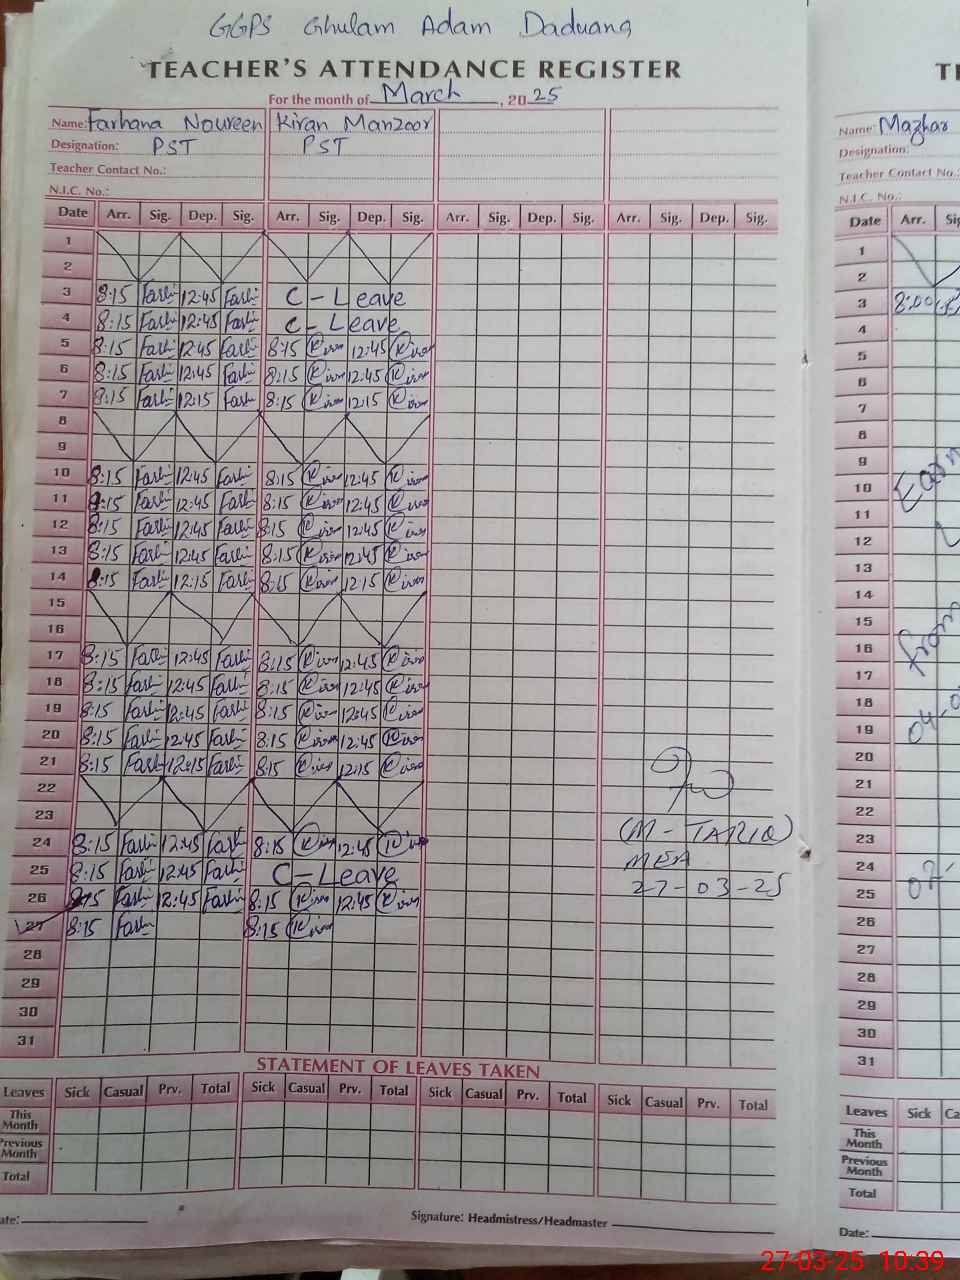 GGPS Ghulam Adam Daduana
TEACHER'S ATTENDANCE REGISTER
For the month of March, 2025
Name: Farhana Noureen Kiran Manzoor
Designation: PST PST
Teacher Contact No.:
N.I.C. No.:
Date Arr. Sig. Dep. Sig. Arr. Sig. Dep. Sig. Arr. Sig. Dep. Sig. Arr. Sig. Dep. Sig.
1
2
3 8:15 Farhi 12:45 Farhi C-Leave
4 8:15 Farhi 12:45 Farhi C-Leave
5 8:15 Farhi 12:45 Farhi 8:15 Kiran 12:45 Kiran
6 8:15 Farhi 12:45 Farhi 8:15 Kiran 12:45 Kiran
7 8:15 Farhi 12:15 Farhi 8:15 Kiran 12:15 Kiran
8
9
10 8:15 Farhi 12:45 Farhi 8:15 Kiran 12:45 Kiran
11 8:15 Farhi 12:45 Farhi 8:15 Kiran 12:45 Kiran
12 8:15 Farhi 12:45 Farhi 8:15 Kiran 12:45 Kiran
13 8:15 Farhi 12:45 Farhi 8:15 Kiran 12:45 Kiran
14 8:15 Farhi 12:15 Farhi 8:15 Kiran 12:15 Kiran
15
16
17 8:15 Farhi 12:45 Farhi 8:15 Kiran 12:45 Kiran
18 8:15 Farhi 12:45 Farhi 8:15 Kiran 12:45 Kiran
19 8:15 Farhi 12:45 Farhi 8:15 Kiran 12:45 Kiran
20 8:15 Farhi 12:45 Farhi 8:15 Kiran 12:45 Kiran
21 8:15 Farhi 12:15 Farhi 8:15 Kiran 12:15 Kiran
22
23
24 8:15 Farhi 12:45 Farhi 8:15 Kiran 12:45 Kiran
25 8:15 Farhi 12:45 Farhi C-Leave
26 8:15 Farhi 12:45 Farhi 8:15 Kiran 12:45 Kiran
27 8:15 Farhi 8:15 Kiran
28
29
30
31
(M-TARIQ)
MEA
27-03-25
STATEMENT OF LEAVES TAKEN
Leaves Sick Casual Prv. Total Sick Casual Prv. Total Sick Casual Prv. Total Sick Casual Prv. Total
This Month
Previous Month
Total
ate:
Signature: Headmistress/Headmaster
T
Name: Mazhar
Designation:
Teacher Contact No.:
N.I.C. No.:
Date Arr. Sig
1
2
3 8:00
4
5
6
7
8
9
10
11
12
13
14
15
16
17
18
19
20
21
22
23
24
25
26
27
28
29
30
31
Earn
from
04-0
07-
Leaves Sick Ca
This Month
Previous Month
Total
Date:
27-03-25 10:39